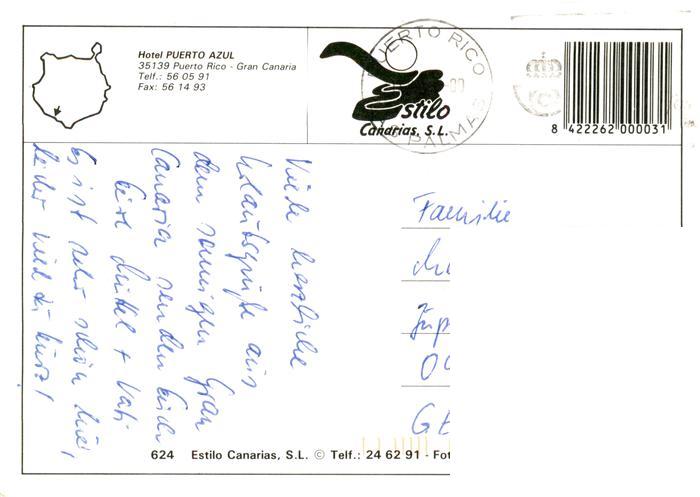 Hotel PUERTO AZUL
35139 Puerto Rico - Gran Canaria
Telf.: 56 05 91
Fax: 56 14 93
PUERTO RICO
PALMAS
Estilo
Canarias, S.L.
8 422262 000031
Viele herzliche
Urlaubsgrüße aus
dem sonnigen Gran
Canaria senden Euch
Eure + Vati
Es ist sehr schön hier,
leider viel zu kurz!
Familie
624 Estilo Canarias, S.L. © Telf.: 24 62 91 - Fot